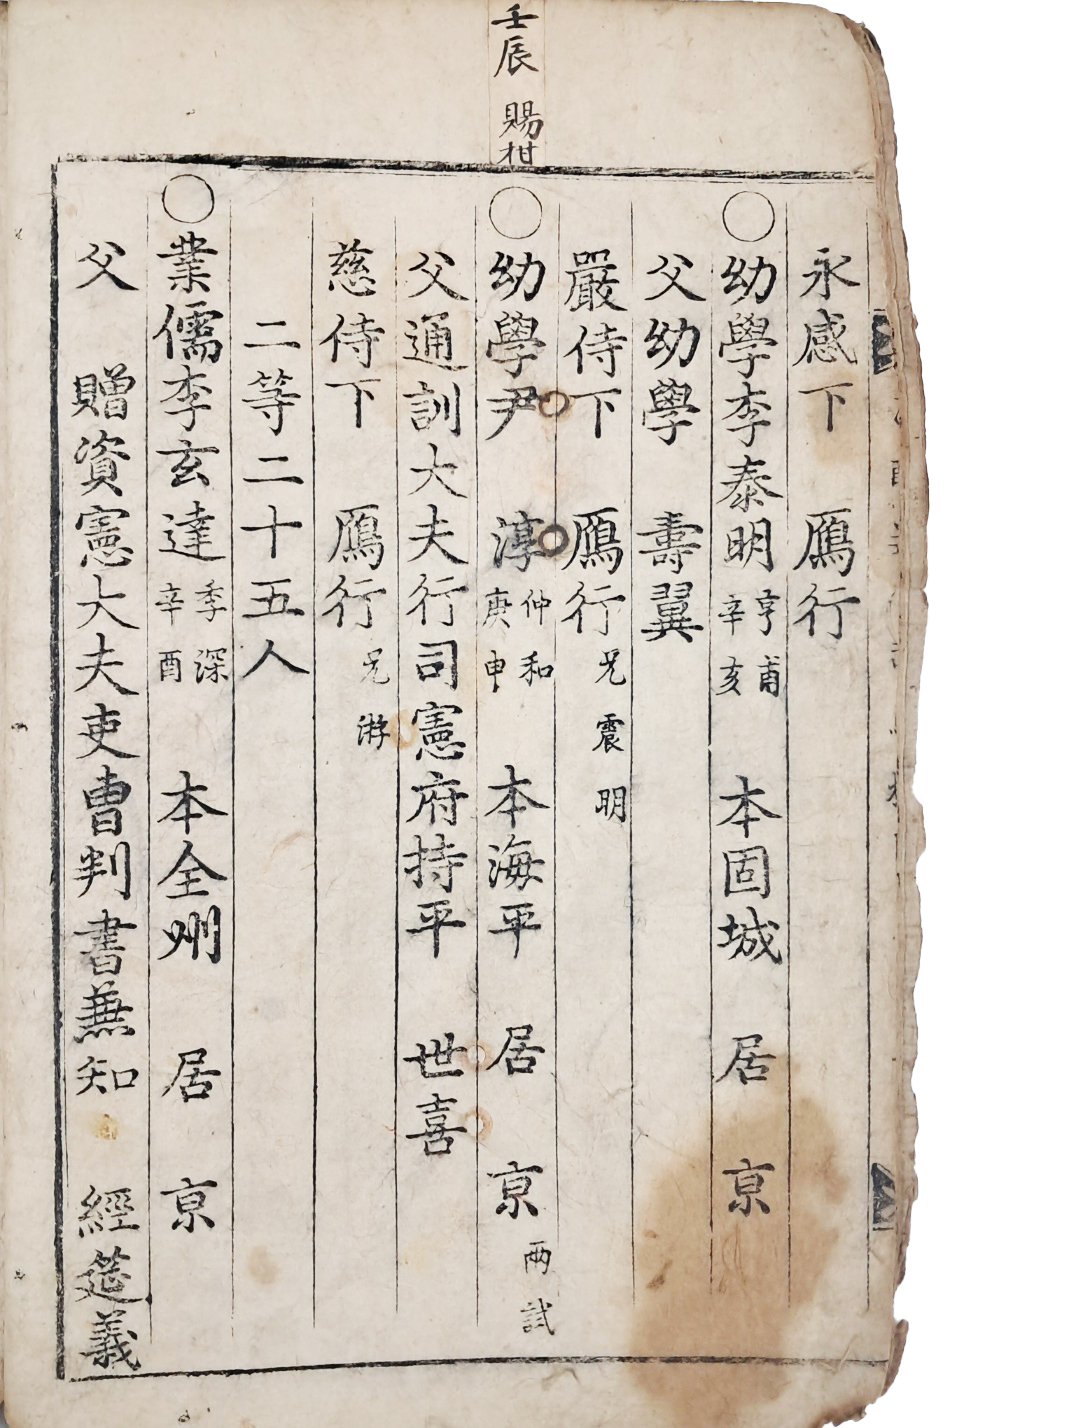 壬辰 賜柑
永感下 鴈行
○幼學李泰明 亨甫 辛亥 本固城 居 京
父幼學 壽翼
嚴侍下 鴈行 兄震明
○幼學尹 淳 仲和 庚申 本海平 居 京 兩試
父通訓大夫行司憲府持平 世喜
慈侍下 鴈行 兄游
二等二十五人
○業儒李玄達 季深 辛酉 本全州 居 京
父 贈資憲大夫吏曹判書兼知 經筵義